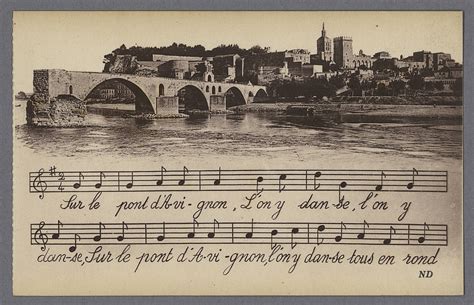 Sur le pont d'A-vi-gnon, L'on y dan-se, l'on y
dan-se, Sur le pont d'A-vi-gnon, l'on y dan-se tous en rond
ND